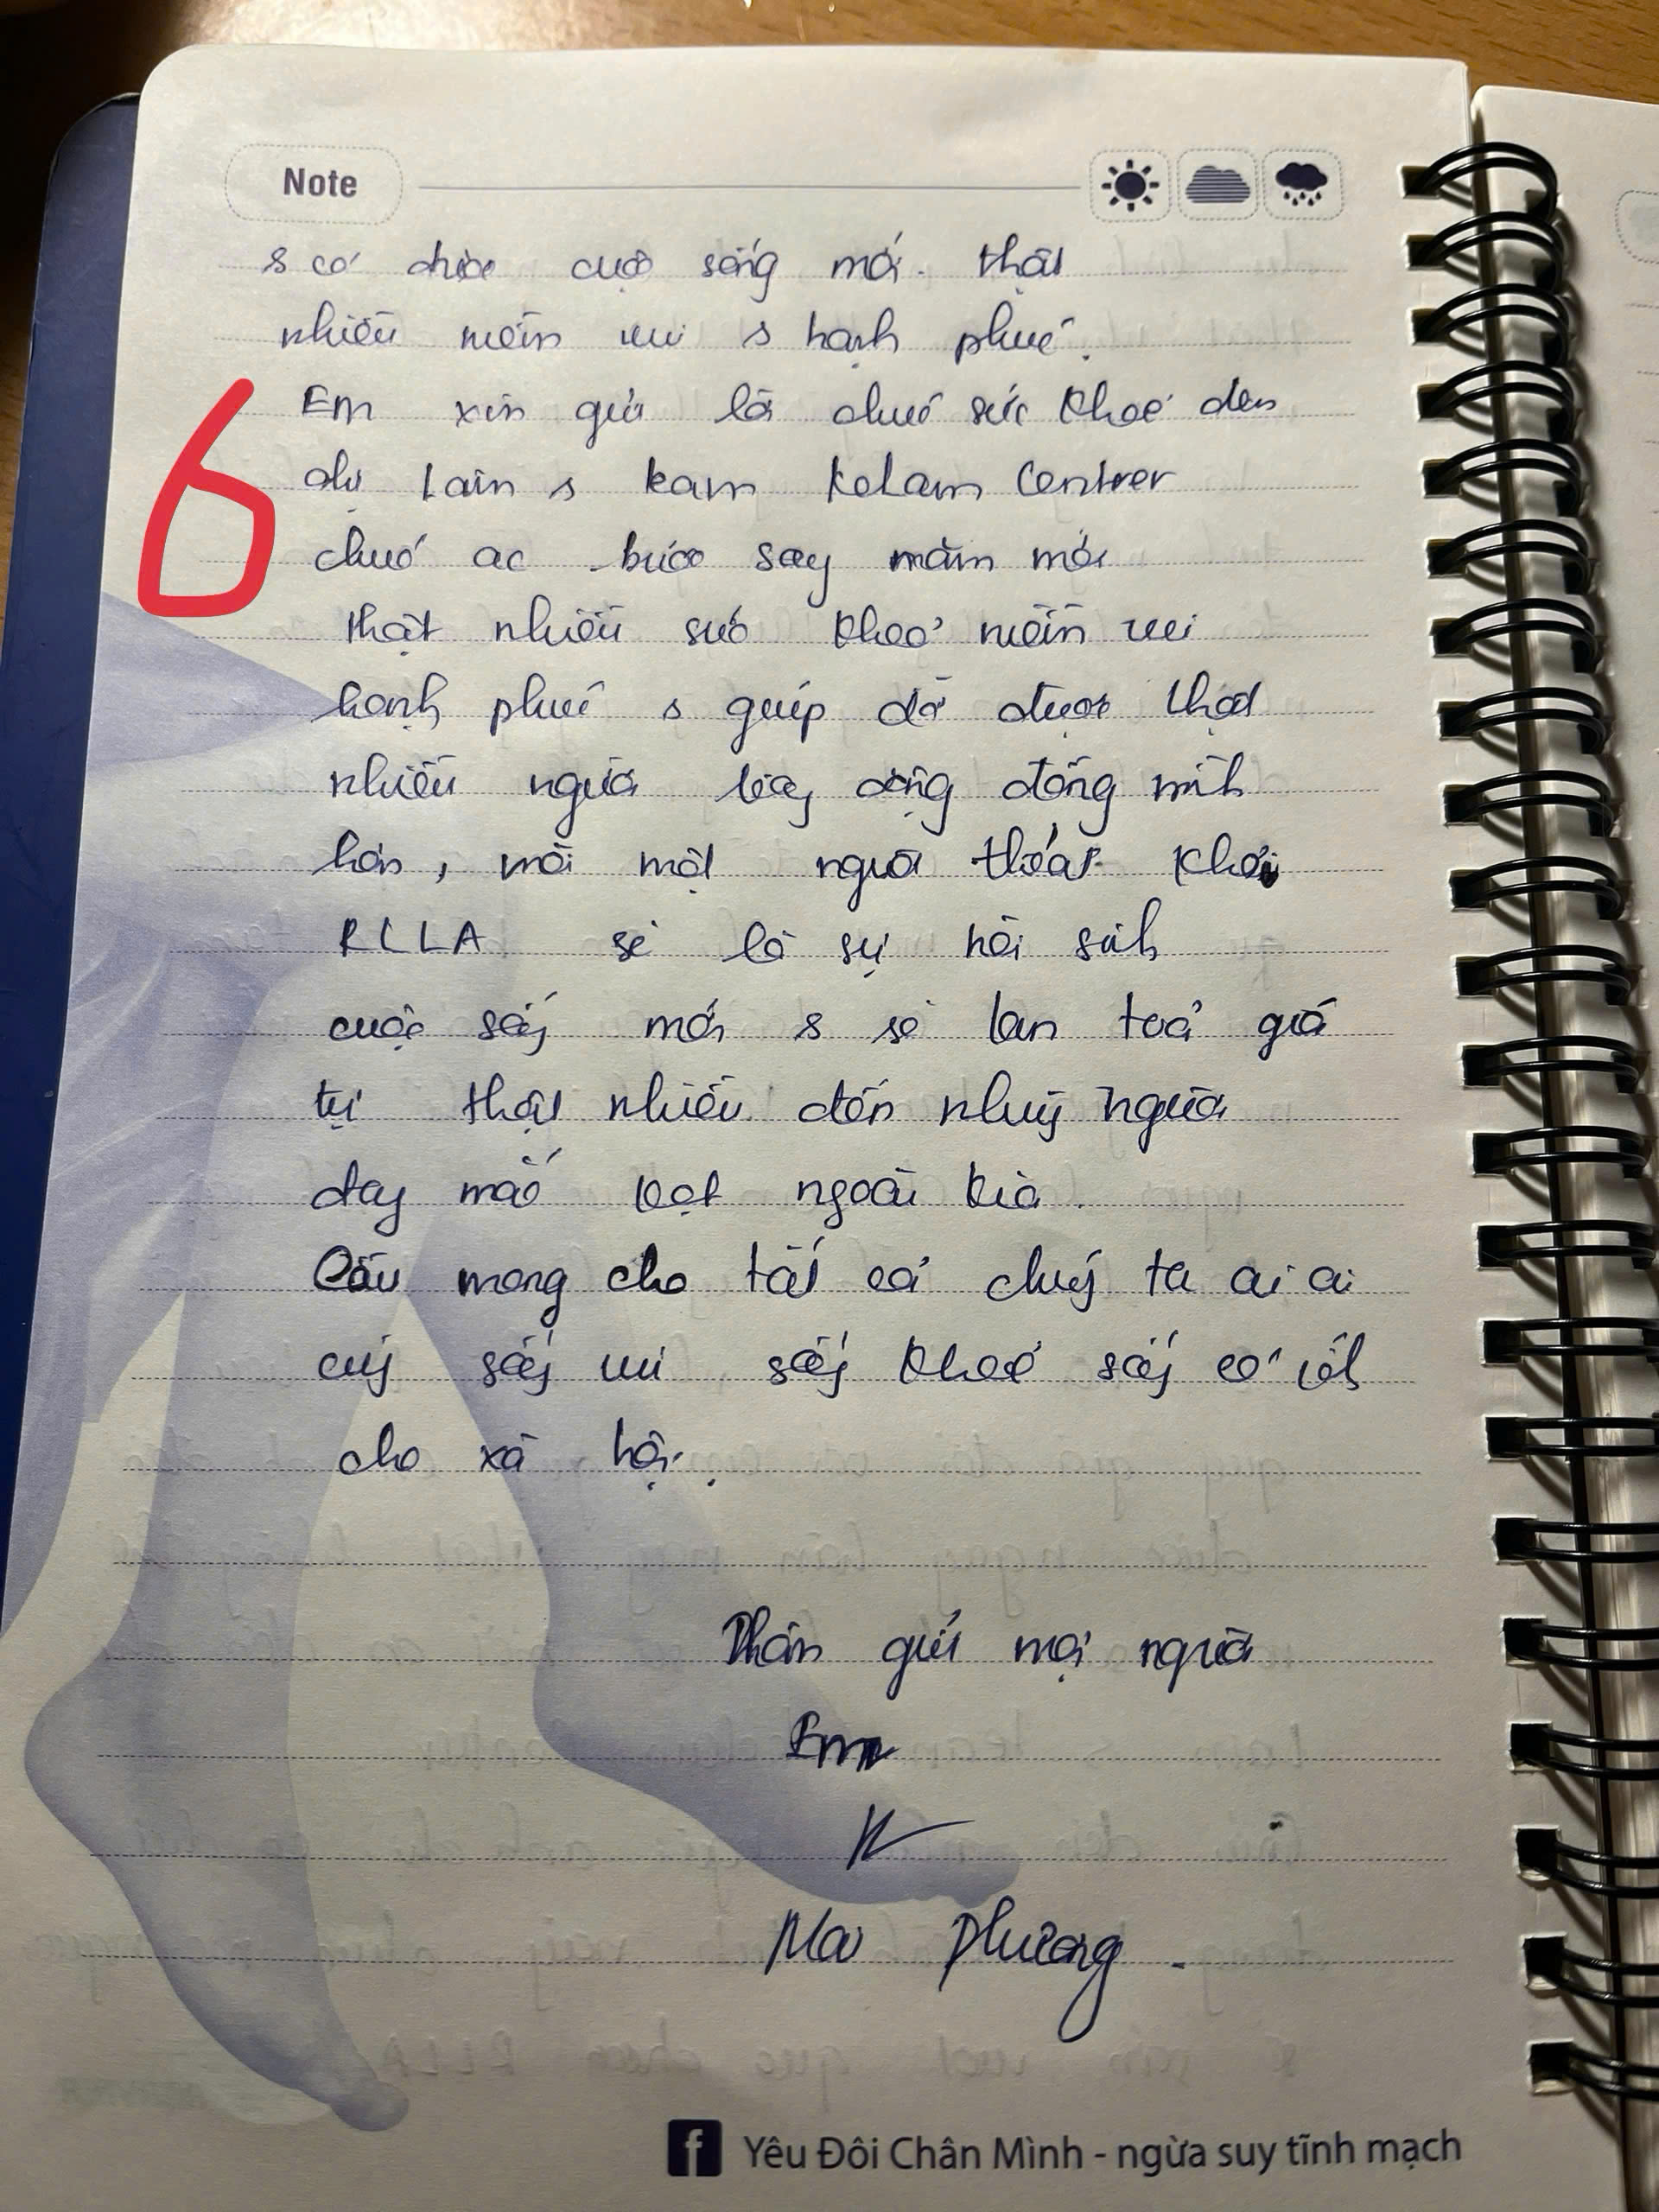 Note
& có được cuộc sống mới. thật
nhiều niềm vui & hạnh phúc.
6
Em xin gửi lời chúc sức khoẻ đến
chị Lâm & team Kelam Center
chúc ac bước sang năm mới
thật nhiều sức khoẻ niềm vui
hạnh phúc & giúp đỡ được thật
nhiều người bằng đồng mình
hơn, mỗi một người thoát khỏi
RLLA sẽ là sự hồi sinh
cuộc sống mới & sẽ lan toả giá
trị thật nhiều đến những người
đang mắc kẹt ngoài kia.
Cầu mong cho tất cả chúng ta ai ai
cũng sống vui, sống khoẻ sống có ích
cho xã hội.
Thân gửi mọi người
Em
Mai Phương.
f Yêu Đôi Chân Mình - ngừa suy tĩnh mạch